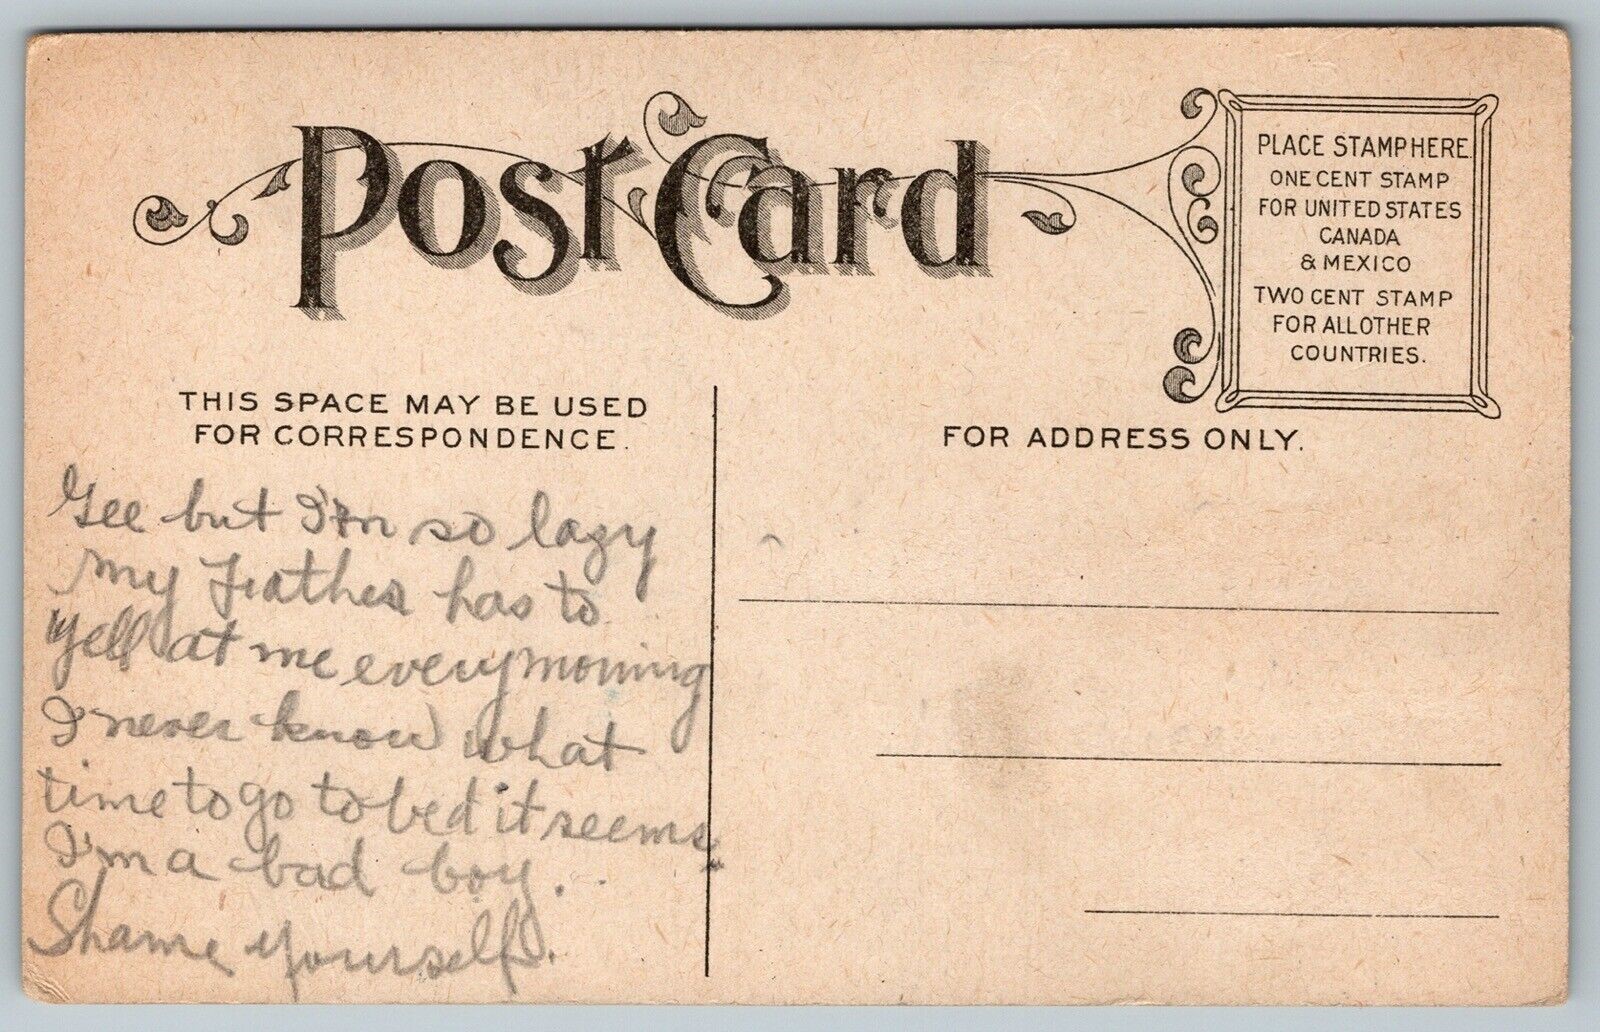 Post Card
PLACE STAMP HERE.
ONE CENT STAMP
FOR UNITED STATES
CANADA
& MEXICO
TWO CENT STAMP
FOR ALL OTHER
COUNTRIES.
THIS SPACE MAY BE USED
FOR CORRESPONDENCE.
FOR ADDRESS ONLY.
Gee but I'm so lazy
my Father has to
yell at me every morning
I never know what
time to go to bed it seems.
I'm a bad boy.
Shame yourself.